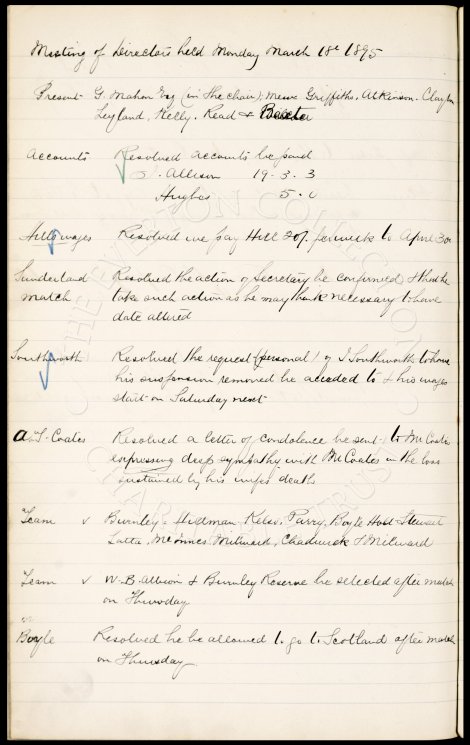 Meeting of Directors held Monday March 18th 1895
Present G. Mahon Esq (in the chair); Messrs Griffiths, Atkinson. Clayton
Leyland, Kelly. Read & Baxter
Accounts Resolved accounts be paid
J. Allison 19 - 3. 3
Hughes 5. 0
Hill wages Resolved we pay Hill 20/- per week to April 30
Sunderland Resolved the action of Secretary be confirmed & that he
match take such action as he may think necessary to have
date altered
Southworth Resolved the request (personal) of J Southworth to have
his suspension removed be acceded to & his wages
start on Saturday next
Coates Resolved a letter of condolence be sent to Mr Coates
expressing deep sympathy with Mr Coates in the loss
sustained by his wifes death
Team v Burnley. Kelso, Parry, Boyle Holt Stewart
Latta, McInnes, Milward, Chadwick & Milward
Team v W. B. Albion & Burnley Reserve be selected after match
on Thursday
Boyle Resolved he be allowed to go to Scotland after match
on Thursday
THE EVERTON COLLECTION
CHARITABLE TRUST